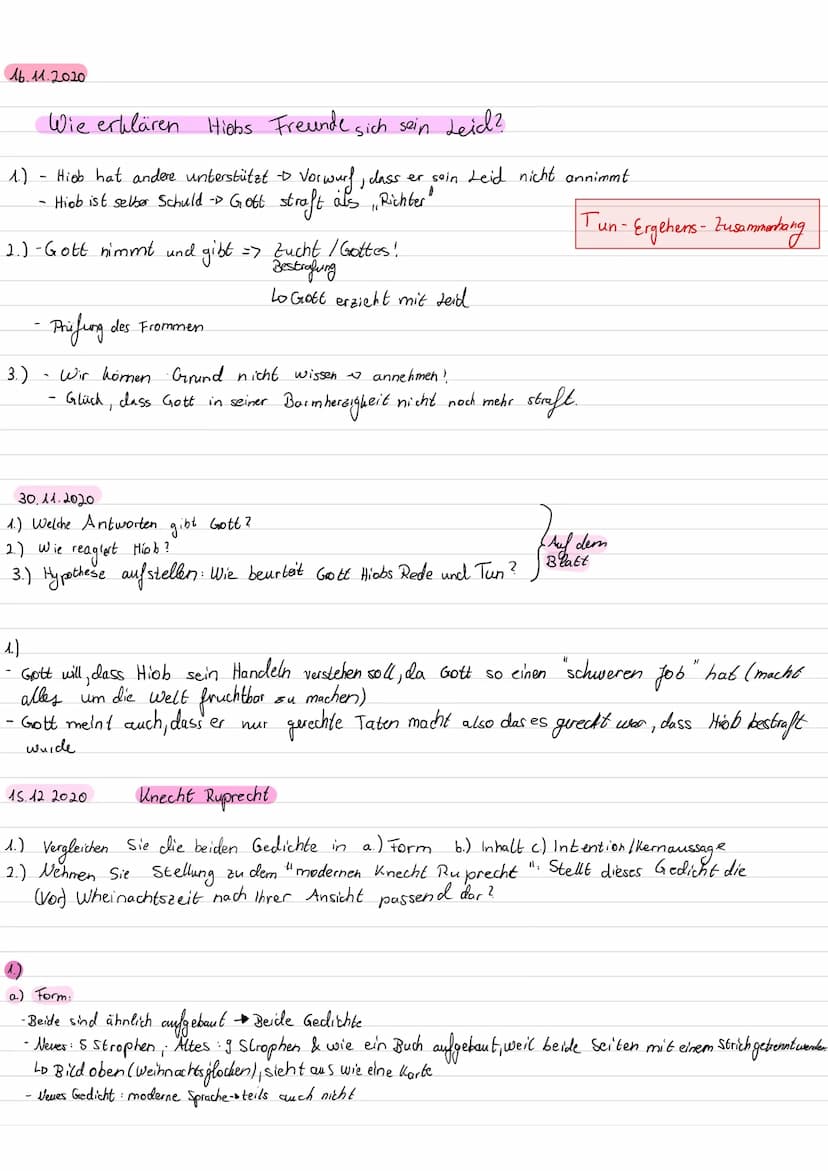 16.11.2020
Wie erklären Hiobs Freunde sich sein Leid?
1.) - Hiob hat andere unterstützt → Vorwurf, dass er sein Leid nicht annimmt
- Hiob ist selber Schuld → Gott straft als „Richter"
Tun-Ergehens-Zusammenhang
2.) - Gott nimmt und gibt => Zucht / Gottes!
Bestrafung
↳ Gott erzieht mit Leid
- Prüfung des Frommen
3.) - Wir können Grund nicht wissen → annehmen!
- Glück, dass Gott in seiner Barmherzigkeit nicht noch mehr straft.
30.11.2020
1.) Welche Antworten gibt Gott?
2.) Wie reagiert Hiob?
3.) Hypothese aufstellen: Wie beurteit Gott Hiobs Rede und Tun?
Auf dem
Blatt
1.)
- Gott will, dass Hiob sein Handeln verstehen soll, da Gott so einen "schweren Job" hat (macht
alles um die Welt fruchtbar zu machen)
- Gott meint auch, dass er nur gerechte Taten macht also das es gerecht war, dass Hiob bestraft
wurde
15.12 2020 Knecht Ruprecht
1.) Vergleichen Sie die beiden Gedichte in a.) Form b.) Inhalt c.) Intention/Kernaussage
2.) Nehmen Sie Stellung zu dem "modernen Knecht Ruprecht". Stellt dieses Gedicht die
(Vor) Wheinachtszeit nach Ihrer Ansicht passend dar?
1.)
a.) Form:
- Beide sind ähnlich aufgebaut → Beide Gedichte
- Neues: 5 Strophen; Altes: 9 Strophen & wie ein Buch aufgebaut, weil beide Seiten mit einem Strich getrennt werden
↳ Bild oben (Weihnachtsglocken), sieht aus wie eine Karte
- Neues Gedicht: moderne Sprache → teils auch nicht